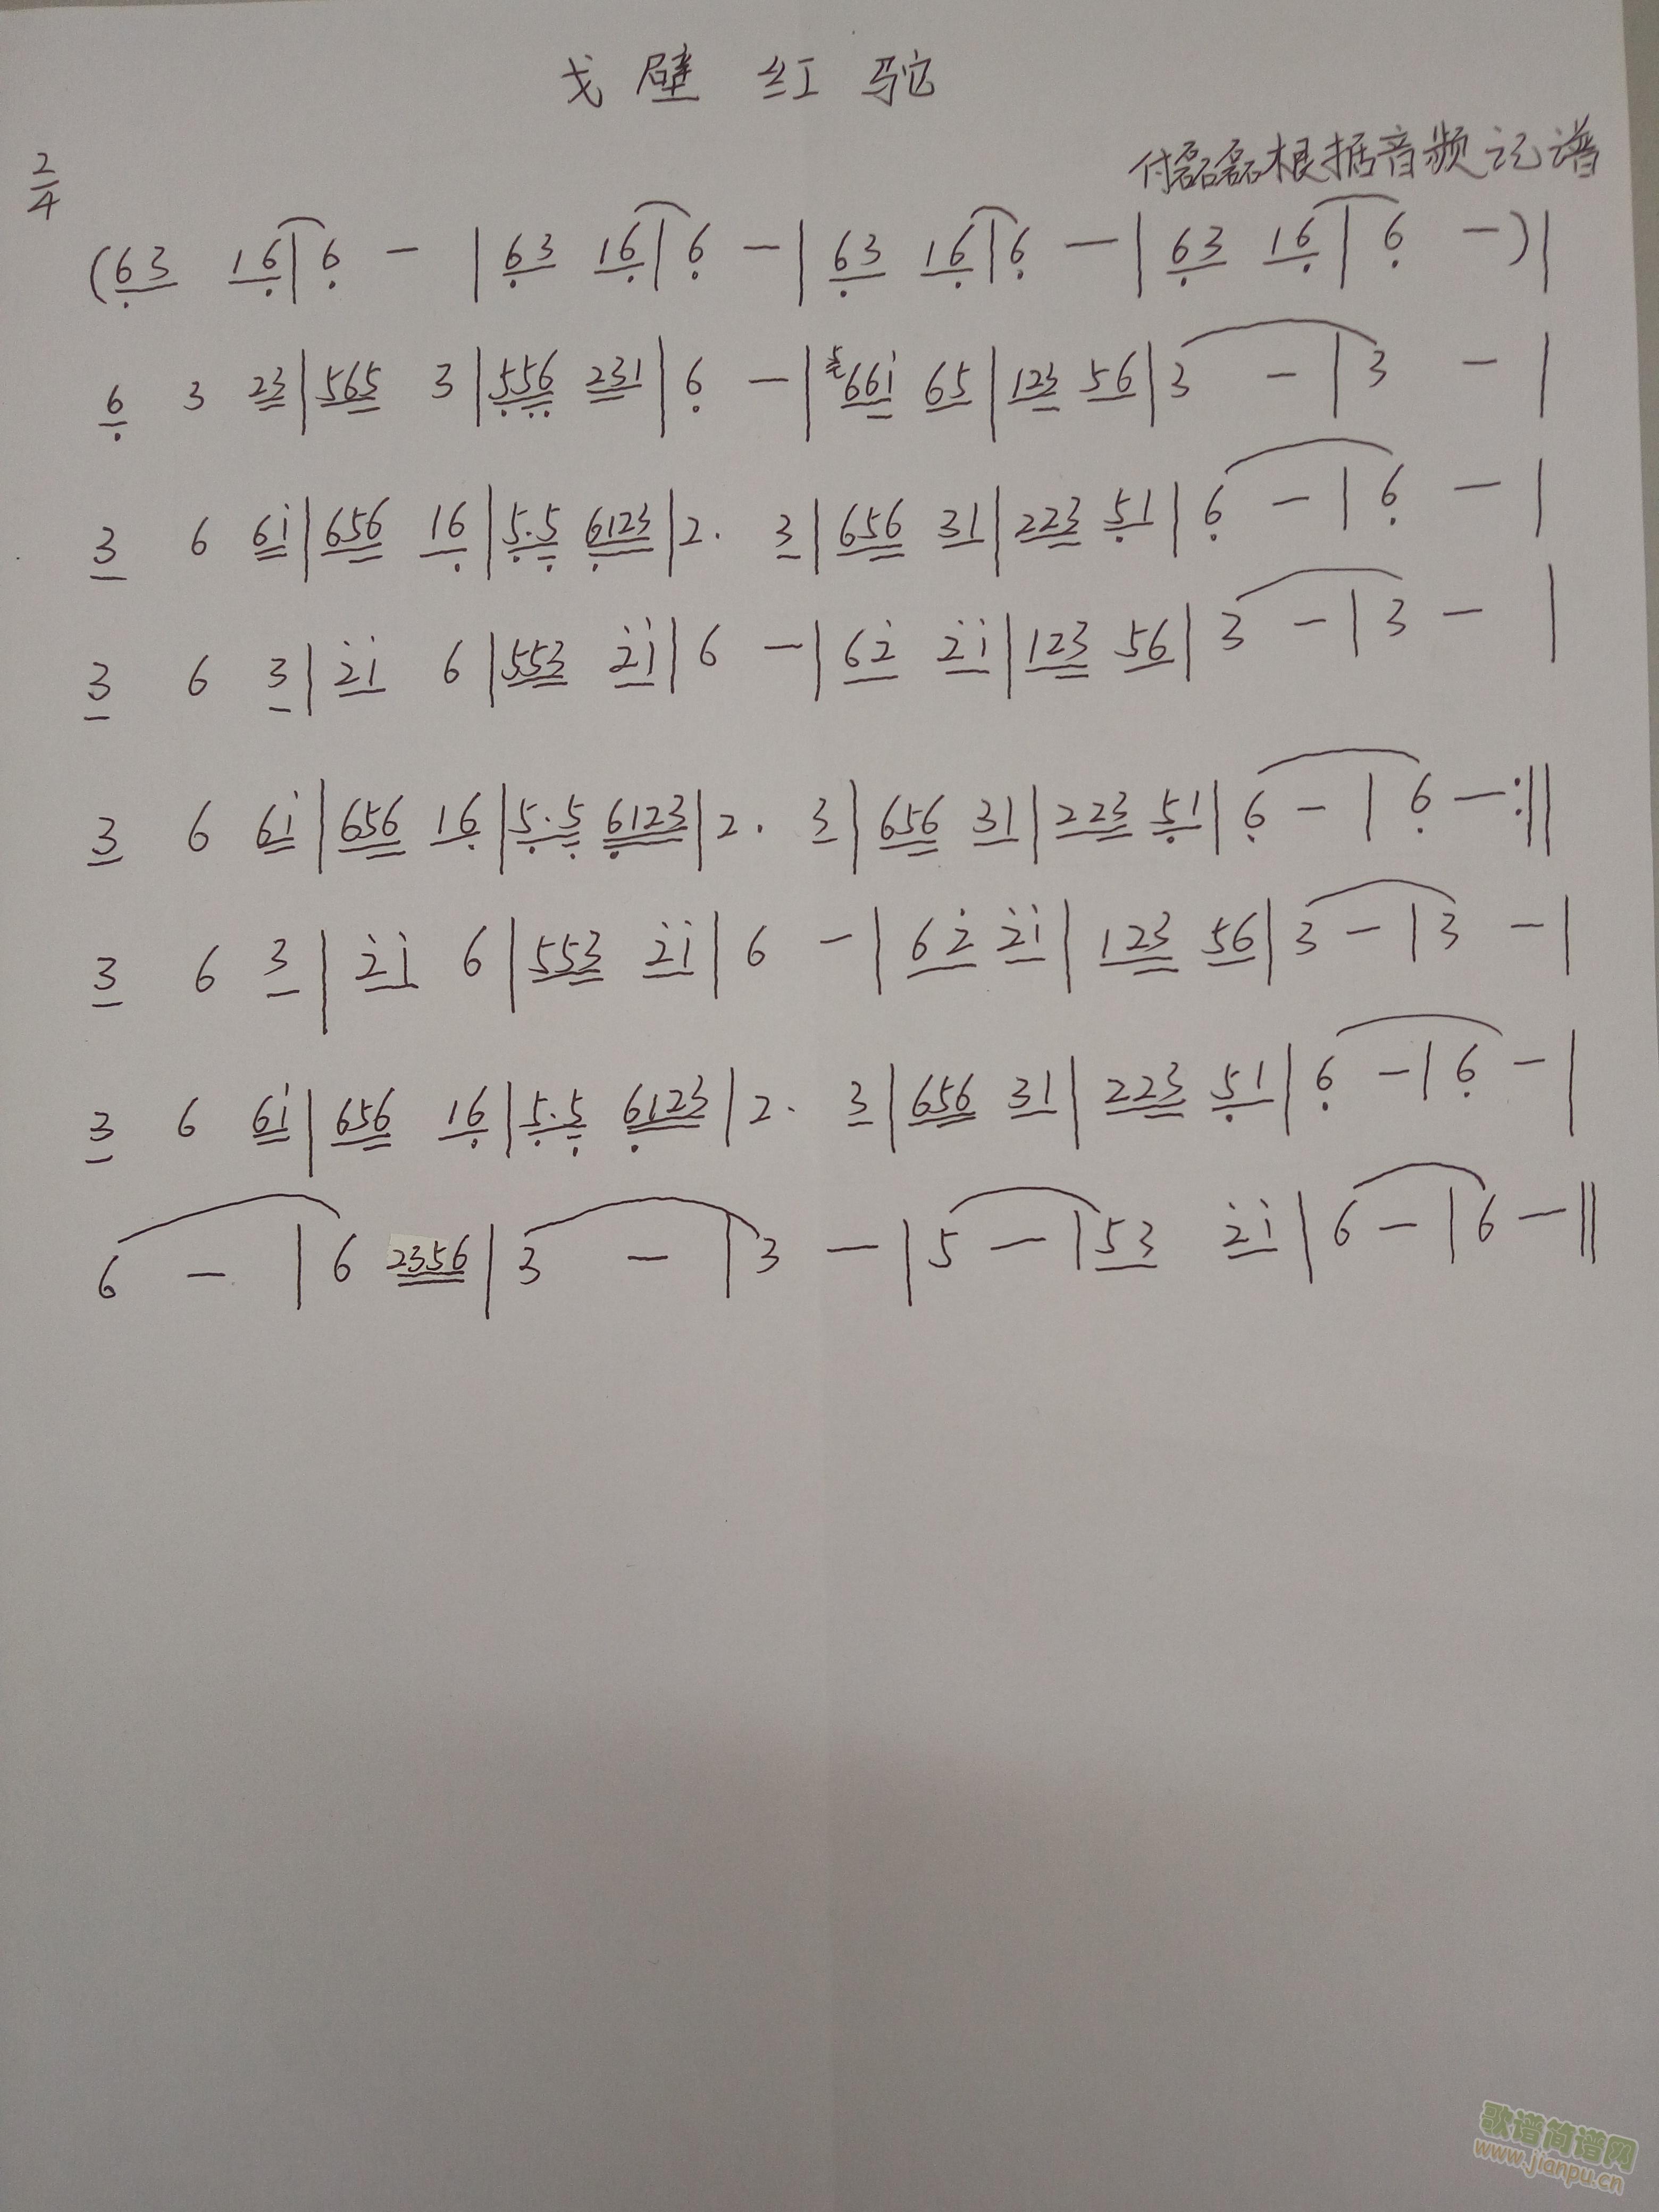 戈壁红驼
2/4
付磊磊根据音频记谱
(6̣3 16̣ | 6̣ - | 6̣3 16̣ | 6̣ - | 6̣3 16̣ | 6̣ - | 6̣3 16̣ | 6̣ -) |
6̣ 3 23 | 565 3 | 5̣5̣6̣ 231 | 6̣ - | 661̇ 65 | 123 56 | 3 - | 3 - |
3 6 61̇ | 656 16̣ | 5̣·5̣ 6̣123 | 2· 3 | 656 31 | 223 5̣1 | 6̣ - | 6̣ - |
3 6 3 | 2̇1̇ 6 | 553 2̇1̇ | 6 - | 62̇ 2̇1̇ | 123 56 | 3 - | 3 - |
3 6 61̇ | 656 16̣ | 5̣·5̣ 6̣123 | 2· 3 | 656 31 | 223 5̣1 | 6̣ - | 6̣ - :||
3 6 3 | 2̇1̇ 6 | 553 2̇1̇ | 6 - | 62̇ 2̇1̇ | 123 56 | 3 - | 3 - |
3 6 61̇ | 656 16̣ | 5̣·5̣ 6̣123 | 2· 3 | 656 31 | 223 5̣1 | 6̣ - | 6̣ - |
6 - | 6 2356 | 3 - | 3 - | 5 - | 53 2̇1̇ | 6 - | 6 - ||
歌谱简谱网
www.jianpu.cn